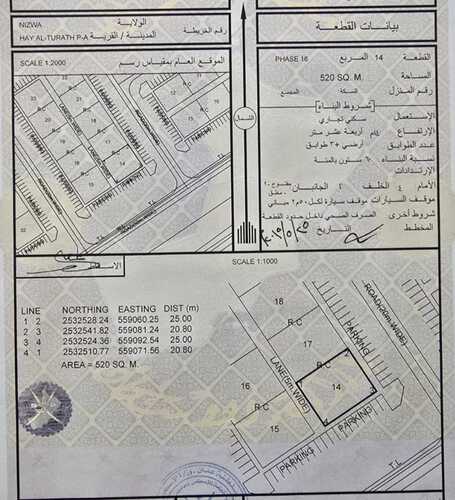 NIZWA
الولايـة
HAY AL-TURATH P-A
المدينة / القرية
رقم الخريطة
بيانات القطعة
SCALE 1:2000
الموقع العام بمقياس رسم
القطعة
14
المربع
PHASE 16
المساحة
520 SQ. M.
رقم المنزل
السكة
المجمع
شروط البناء
الإستعمال
سكني تجاري
الإرتفاع
أربعة عشر متر
عدد الطوابق
أرضي +٣ طوابق
نسبة البناء
ستون بالمئة
الإرتدادات
الأمام
٤
الخلف
٢
الجانبان
موقف السيارات
موقف سيارة لكل ٥٠م٢ مباني
شروط أخرى
الصرف الصحي داخل حدود القطعة
المخطط
التاريخ
الشمال
SCALE 1:1000
LINE NORTHING EASTING DIST (m)
1 2 2532528.24 559060.25 25.00
2 3 2532541.82 559081.24 20.80
3 4 2532524.36 559092.54 25.00
4 1 2532510.77 559071.56 20.80
AREA = 520 SQ. M.
18
R.C
17
16
R.C
15
14
LANE(5m.WIDE)
PARKING
ROAD(20m.WIDE)
PARKING
PARKING
T.L